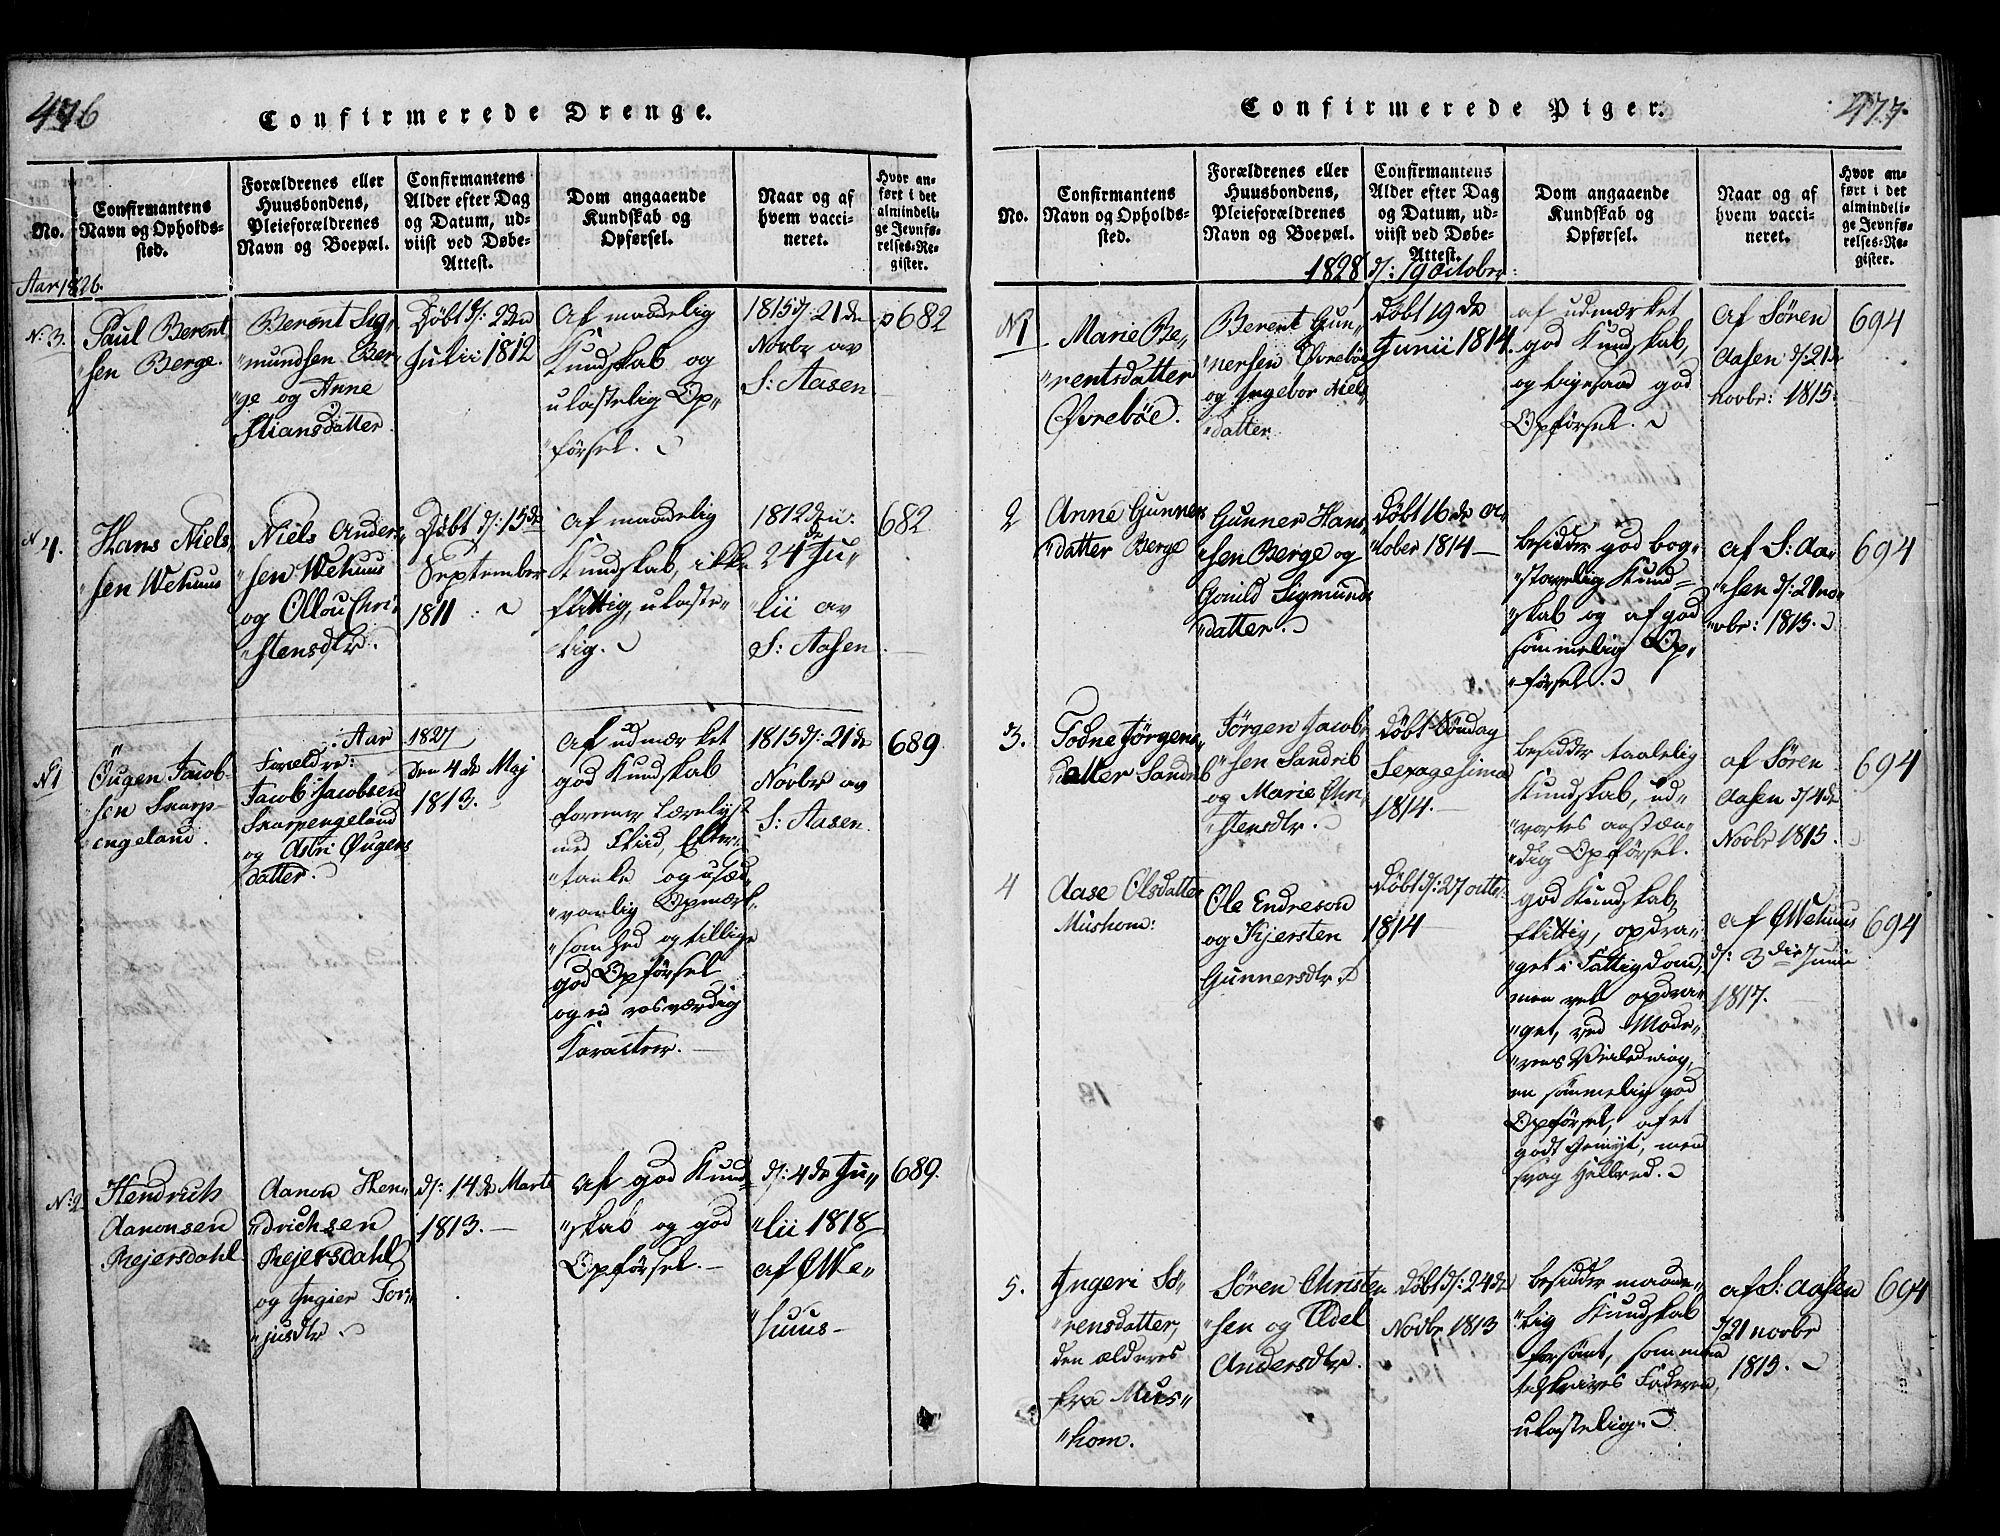 476
Confirmerede Drenge.
No.
Confirmantens
Navn og Opholds-
sted.
Forældrenes eller
Huusbondens,
Pleieforældrenes
Navn og Boepæl.
Confirmantens
Alder efter Dag
og Datum, ud-
viist ved Døbe-
Attest.
Dom angaaende
Kundskab og
Opførsel.
Naar og af
hvem vacci-
neret.
Hvor an-
ført i det
almindeli-
ge Jevnfø-
relses-Re-
gister.
Aar 1826.
N: 3.
Paul Berent,
"sen Berge.
Berent Sig,,
"mundsen Ber-
ge og Anne
Stiansdatter.
Døbt d: 2den
Julii 1812
Af maadelig
Kundskab og
ulastelig Op,,
"førsel.
1815 d: 21de
Novbr av
S: Aasen
682
N 4.
Hans Niels,
"sen Wehuus
Niels Ander,,
"sen Wehuus
og Ollou Chri,,
"stensdtr.
Døbt d: 15de
September
1811
Af maadelig
Kundskab, ikke
flittig, ulaste-
lig.
1812 den
24de Ju,,
"lii av
S: Aasen
682
Aar 1827
N 1
Øugen Jacob-
sen Skarp-
engeland.
Foreldre:
Jacob Jacobsen
Skarpengeland
og Astri Øugens
datter.
Den 4de Maj
1813.
Af udmærket
god Kundskab
forener Lærelyst
med Fliid, Efter,,
"tanke og usæd,,
"vanlig Opmærk,,
"somhed og tillige
god Opførsel
og en rosværdig
Karacteer.
1815 d: 21de
Novbr av
S: Aasen.
689
N: 2
Hendrich
Aanonsen
Rejersdahl
Aanon Hen,,
"drichsen
Rejersdahl
og Ingier Tor,,
"jusdtr
d: 14de Marts
1813.
Af god Kund,,
"skab og god
Opførsel.
d: 4de Ju,,
"lii 1818
af O We,,
"huus
689.
477.
Confirmerede Piger.
No.
Confirmantens
Navn og Opholds-
sted.
Forældrenes eller
Huusbondens,
Pleieforældrenes
Navn og Boepæl.
Confirmantens
Alder efter Dag
og Datum, ud-
viist ved Døbe-
Attest.
Dom angaaende
Kundskab og
Opførsel.
Naar og af
hvem vacci-
neret.
Hvor an-
ført i det
almindeli-
ge Jevnfø-
relses-Re-
gister.
1828 d: 19 october:
N 1
Marie Be,,
"rentsdatter
Øvrebøe.
Berent Gun,,
"nersen Øvrebøe
og Ingebor Niels
"datter.
Døbt 19de
Junii 1814.
af udmærket
god Kundskab,
og ligesaa god
Opførsel.
Af Søren
Aasen d: 21de
Novbr: 1815
694
2
Anne Gunners
"datter Berge
Gunner Hans,
"sen Berge og
Gonild Sigmunds
"datter.
Døbt 16de oc,,
"tober 1814
besidder god bog,,
"stavelig Kund=
"skab og af god
sømmelig Op,,
"førsel.
af S: Aa,,
"sen d: 21 no,,
"vbr: 1815.
694
3.
Todne Jørgens,,
"datter Sandrib
Jørgen Jacob,
"sen Sandrib
og Marie Chri,
"stensdtr.
Døbt Søndag
Sexagesima
1814.
besidder taalelig
Kundskab, ud-
"vortes anstæn-
"dig Opførsel.
af Søren
Aasen d: 4de
Novbr 1815.
694
4
Aase Olsdatter
Mushom:
Ole Endreson
og Kjersten
Gunnersdtr.
Døbt d: 27 octbr.
1814
god Kundskab,
flittig, opdra-
"get i Fattigdom,
men vel opdra,,
"get, ved Mode,,
"rens Veiledning,
en sømmelig god
Opførsel, af et
godt Gemyt, men
svag Helbred.
af O Wehuus
d: 3die Junii
1817.
694
5.
Ingeri Sø,,
"rensdatter,
den ælderes
fra Mus,,
"hom.
Søren Christen
"sen og Edel
Andersdtr.
Døbt d: 24de
Novbr 1813
besidder maade,,
"lig Kundskab
forsømt, som maa
tilskrives Faderen,
ulastelig.
af S: Aasen
d/21 novbr
1815.
694